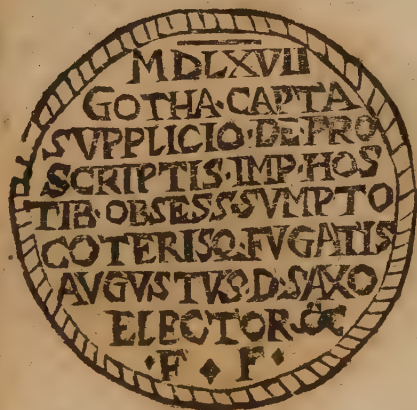 MDLXVII
GOTHA·CAPTA
SVPPLICIO·DE·PRO
SCRIPTIS·IMP·HOS
TIB·OBSESS·SVMPTO
COTERISQ·FVGATIS
AVGVSTVS·D·SAXO
ELECTOR·&C
·F◆F·